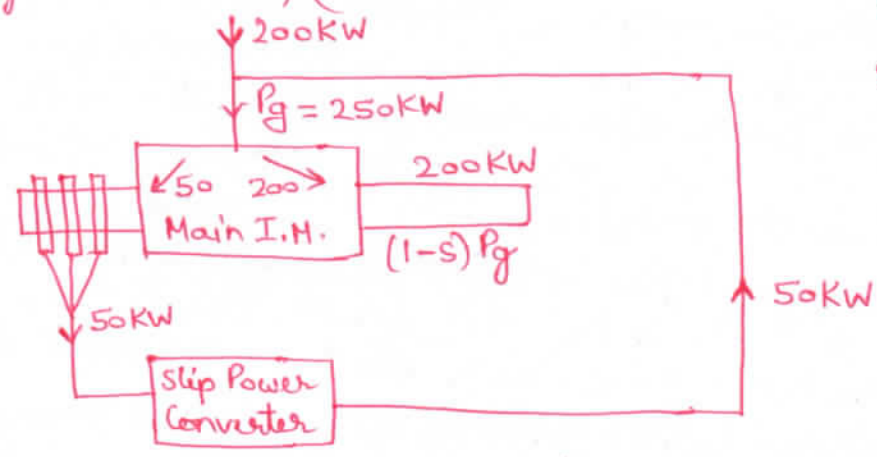 200KW
Pg = 250KW
50 200
Main I.M.
200KW
(1-S) Pg
50KW
50KW
Slip Power
Converter